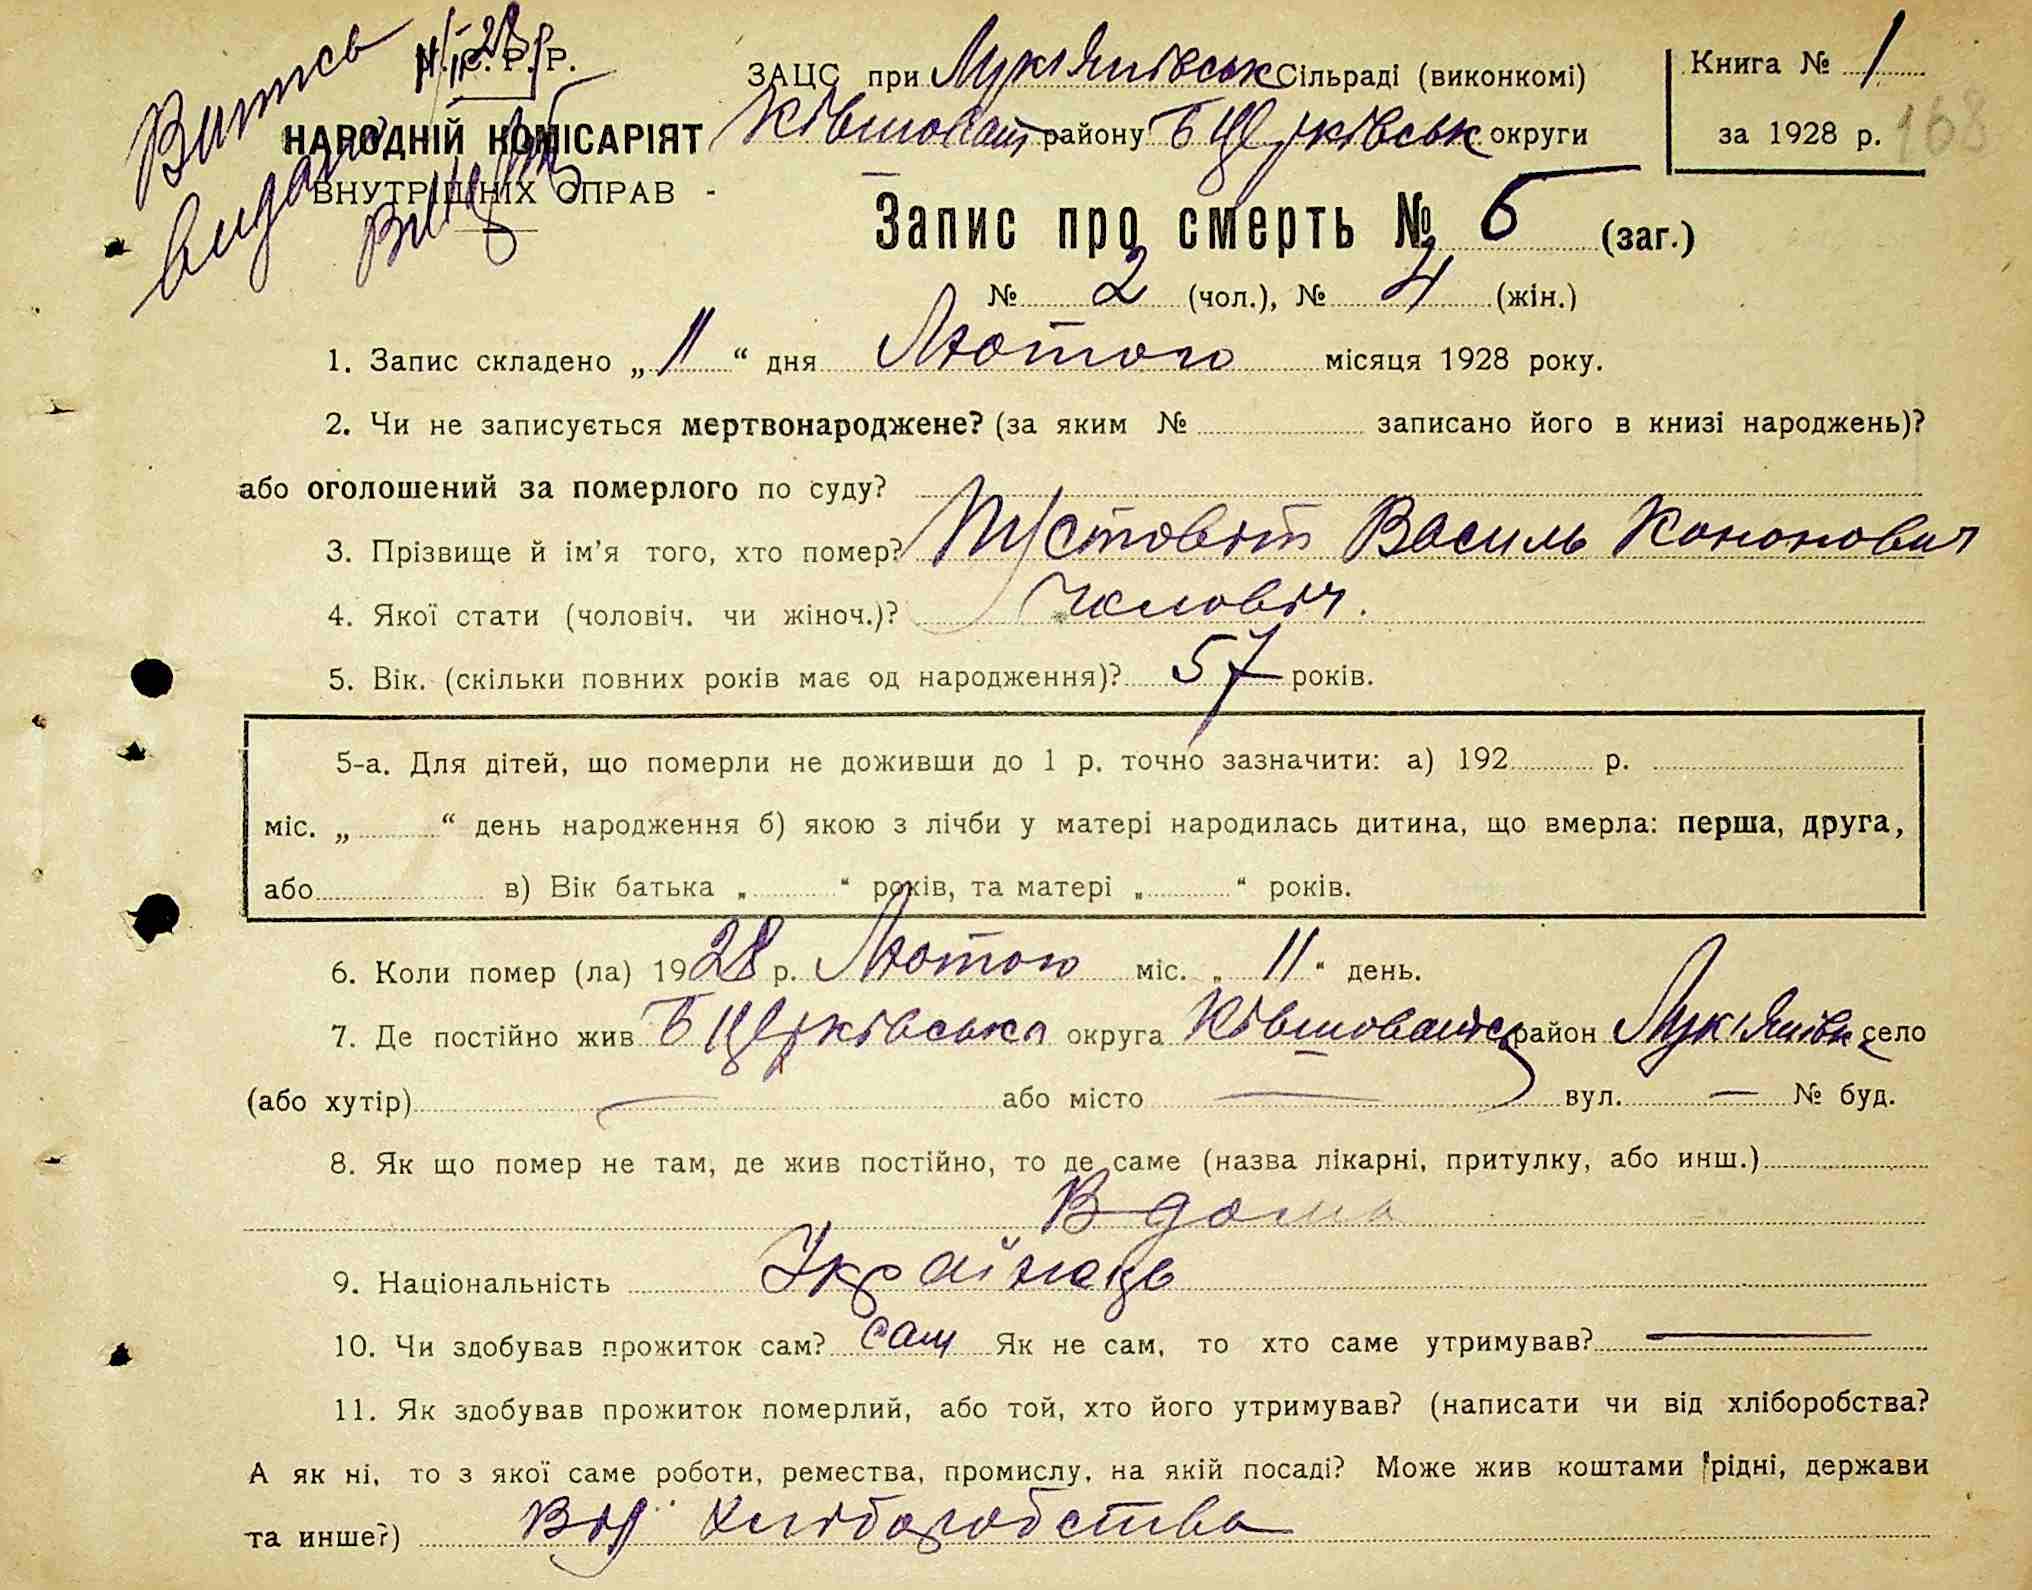 Витсь видано
11/II 28 р.
У. С. Р. Р.
НАРОДНІЙ КОМІСАРІЯТ
ВНУТРІШНІХ СПРАВ -
ЗАЦС при Лук'янівськ Сільраді (виконкомі)
Ківшоват району Б Церківськ округи
Книга № 1
за 1928 р.
168
Запис про смерть № 6 (заг.)
№ 2 (чол.), № 4 (жін.)
1. Запис складено „ 11 “ дня Лютого місяця 1928 року.
2. Чи не записується мертвонароджене? (за яким № записано його в книзі народжень)?
або оголошений за померлого по суду?
3. Прізвище й ім'я того, хто помер? Пустовіт Василь Кононович
4. Якої стати (чоловіч. чи жіноч.)? Чоловіч.
5. Вік. (скільки повних років має од народження)? 57 років.
5-а. Для дітей, що померли не доживши до 1 р. точно зазначити: а) 192 р.
міс. „ “ день народження б) якою з лічби у матері народилась дитина, що вмерла: перша, друга,
або в) Вік батька „ “ років, та матері „ “ років.
6. Коли помер (ла) 1928 р. Лютого міс. „ 11 “ день.
7. Де постійно жив Б Церківська округа Ківшоватськ район Лук'янівк село
(або хутір) — або місто — вул. — № буд.
8. Як що помер не там, де жив постійно, то де саме (назва лікарні, притулку, або инш.)
В дома
9. Національність Українець
10. Чи здобував прожиток сам? сам Як не сам, то хто саме утримував? —
11. Як здобував прожиток померлий, або той, хто його утримував? (написати чи від хліборобства?
А як ні, то з якої саме роботи, ремества, промислу, на якій посаді? Може жив коштами рідні, держави
та инше?) Від хліборобства